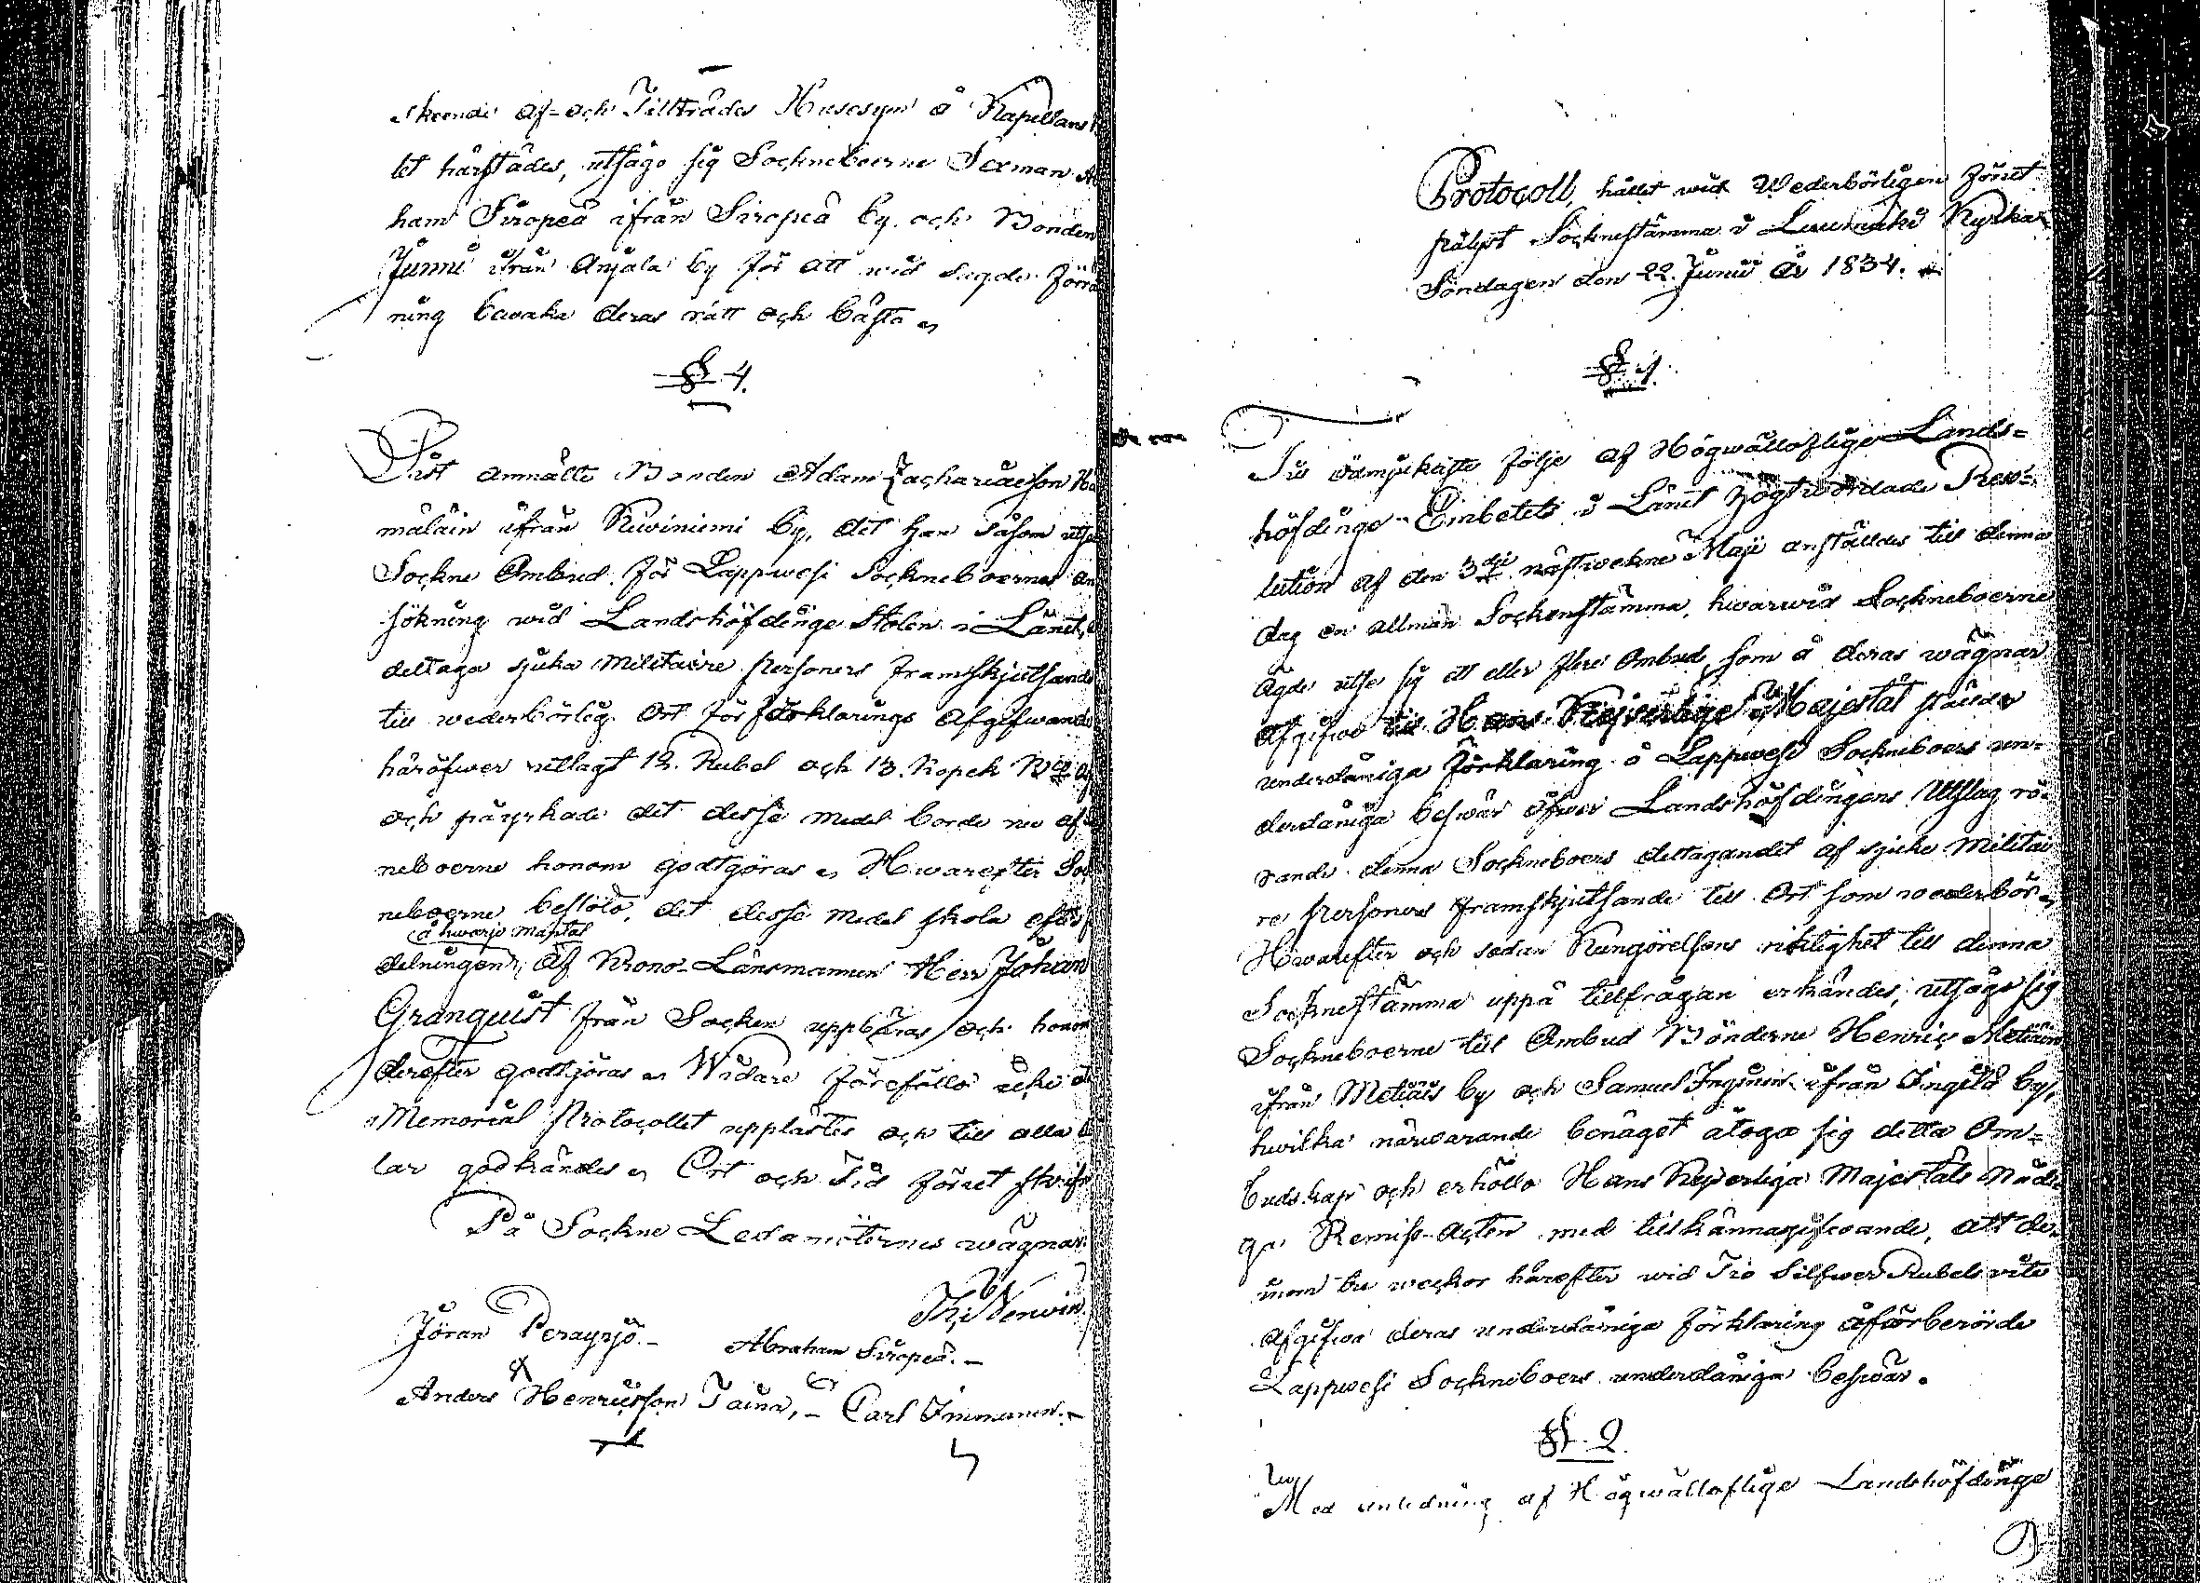 skeende af- och Tillträdes Husesyn å Kapellans
let härstädes, utsågo sig Sockneboerne Sexman
ham Siropeä ifrån Siropeä by. och Bonden
Junni ifrån Anjala by för att wid sagde förrä
ning bewaka deras rätt och bästa
§ 4.
Sist anmälte Bonden Adam Zachariæsson
mäläin ifrån Kiwiniemi by, det han såsom
Sockne Ombud för Lappwesi Sockneboernes an
sökning wid Landshöfdinge Stolen i Länet,
deltaga sjuka Militaire personers framskjutsande
till wederbörlig Ort för förklarings Afgifwande
häröfwer utlagt 12. Rubel och 13. Kopek
och påyrkade det desse medel borde nu af
neboerne honom godtgöras Hwarefter Soc
neboerne beslöto, det desse medel skola efter
å hwarje mantal
delningen, af Krono-Länsmannen Herr Johan
Granquist från Socken uppbäras och honom
derefter godtgöras Widare förefölld icke
Memorial Protocollet upplästes och till alla
lar godkändes Ort och Tid förut skrif
På Sockne Ledamöternes wägnar
Jöran Perayrjö. Abraham Siropeä.
Anders Henricsson Taina, Carl Immonen.
Protocoll, hållet wid Wederbörligen förut
pålyst Sockenstämma i Kyrka
Söndagen den 22. Junii År 1834.
§ 1.
Till ödmjukaste följe af Högwällofliga Lands-
höfdinge-Embetets i Länet högtwördade Reso-
lution af den 3die nästwekne Maji anställdes till denna
dag en allmän Sockenstämma, hwarwid Sockneboerne
ägde utse sig ett eller flere Ombud som å deras wägnar
Afgifwa till Hans Kejserlige Majestät ställde
underdåniga förklaring å Lappwesi Sockneboers un-
derdåniga beswär öfwer Landshöfdingens Utslag rö-
rande denna Sockneboers deltagandet af sjuke Militai
re personers framskjutsande till Ort som wederbör
Hwarefter och sedan Kungörelsens riktighet till denna
Socknestämma uppå tillfrågan erkändes, utsågo sig
Sockneboerne till Ombud Bönderne Henric Metiäin
ifrån Metiäis by och Samuel Inginin ifrån Ingilä by,
hwilka närwarande benäget åtogo sig detta Om-
budskap och erhöllo Hans Kejserliga Majestäts Nådi-
ga Remiss-Acten med tillkännagifwande, att de
inom tre weckor härefter wid Tio Silfwer Rubels wite
Afgifwa deras underdåniga förklaring åfwerberörde
Lappwesi Sockneboers underdåniga beswär.
§ 2.
Med anledning af Högwälloflige Landshöfdinge